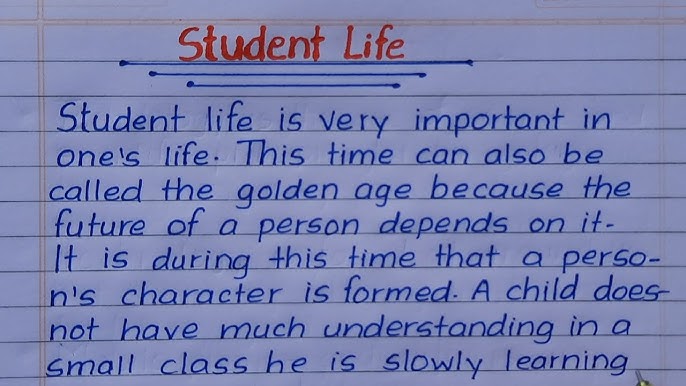 Student Life
Student life is very important in
one's life. This time can also be
called the golden age because the
future of a person depends on it.
It is during this time that a perso-
n's character is formed. A child does-
not have much understanding in a
small class he is slowly learning